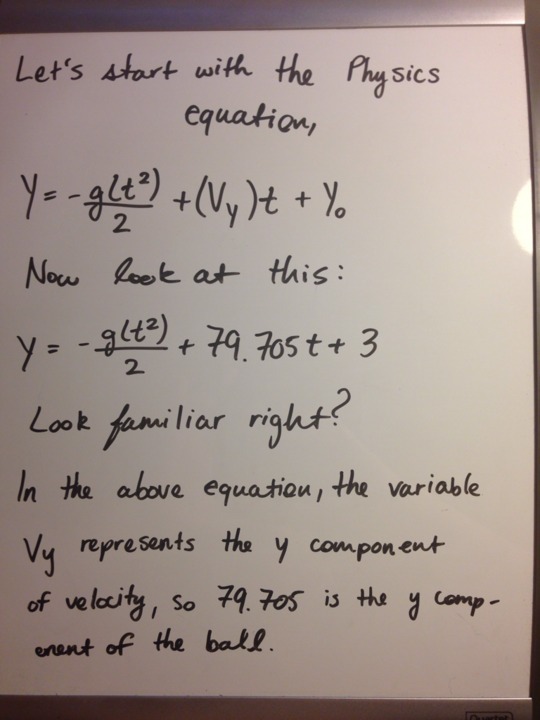 Let's start with the Physics
equation,
y = -g(t²)/2 + (Vy)t + y₀
Now look at this:
y = -g(t²)/2 + 79.705t + 3
Look familiar right?
In the above equation, the variable
Vy represents the y component
of velocity, so 79.705 is the y comp-
onent of the ball.
Quartet